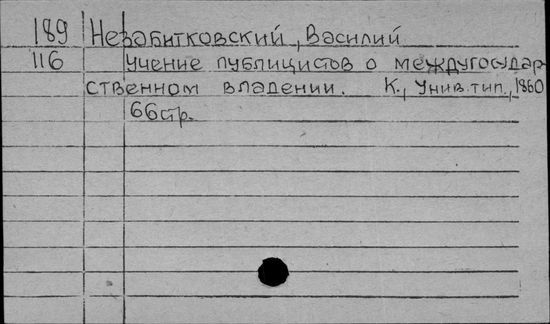 189 Незабитковский, Василий
116 Учение публицистов о междугосудар-
ственном владении. К., Унив. тип., 1860
66 стр.